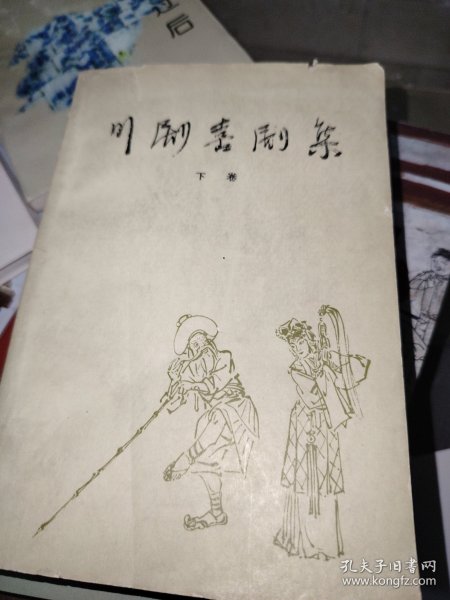 过后
川剧喜剧集
下卷
孔夫子旧书网
www.kongfz.com